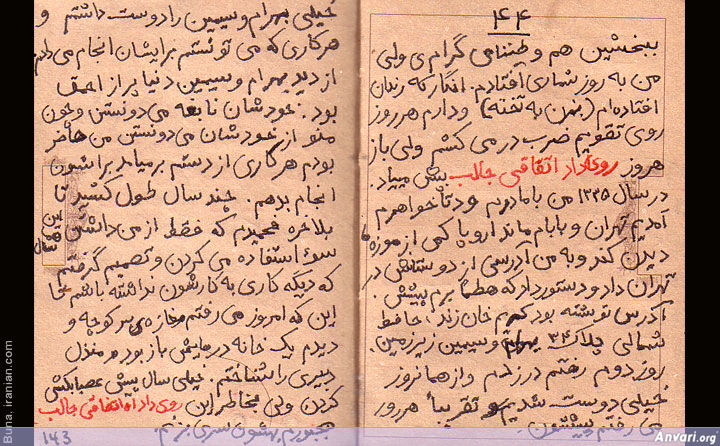 ۴۴
ببخشین هم وطننامی گرام ی ولی
من به روز شماری افتادم. انگار که زندان
افتاده ام (بزنن به تخته) و دارم هر روز
روی تقویم ضرب در می کشم ولی باز
هر روز روی داد اتفاقی جالب پیش میاد.
در سال ۱۳۳۵ من با مادرم و دتا خواهرم
آمدیم تهران و بابام ماند اروپا کمی از موزه ها
دیدن کند و به من آدرسی از دوستانش در
تهران داد و دستور داد که حطماً برم پیشش.
آدرس نوشته بود کریم خان زند، حافظ
شمالی پلاک ۳۴ بهرام و سیمین زیرزمین.
روز دوم رفتم در زدم و از همانروز
خیلی دوست شدیم و تقریباً هر روز
می رفتم پیششون.
خیلی بهرام و سیمین را دوست داشتم و
هر کاری که می تونستم برایشان انجام می دادم
از دید بهرام و سیمین دنیا پر از احمق
بود. خودشان نابغه می دونستن و چون
منو از خودشان می دونستن من حاضر
بودم هر کاری از دستم بر میامد براشون
انجام بدهم. چند سال طول کشید تا
بلاخره فهمیدم که فقط از من داشتن
سوء استفاده می کردن و تصمیم گرفتم
که دیگه کاری به کارشون نداشته باشم تا
این که امروز می رفتم مغازه ی سر کوچه و
دیدم یک خانه در مایشی باز بود و منزل
دبیری را شناختم. خیلی سال پیش عصبا
کردن ولی بخاطر این روی داد اتفاقی جالب
مجبورم بهشون سری بزنم.
این سال
143
Buna. iranian.com
Anvari.org